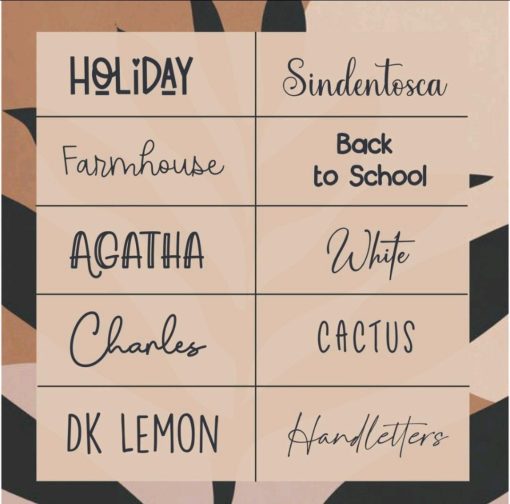 HOLiDAY
Sindentosca
Farmhouse
Back
to School
AGATHA
White
Charles
CACTUS
DK LEMON
Handletters